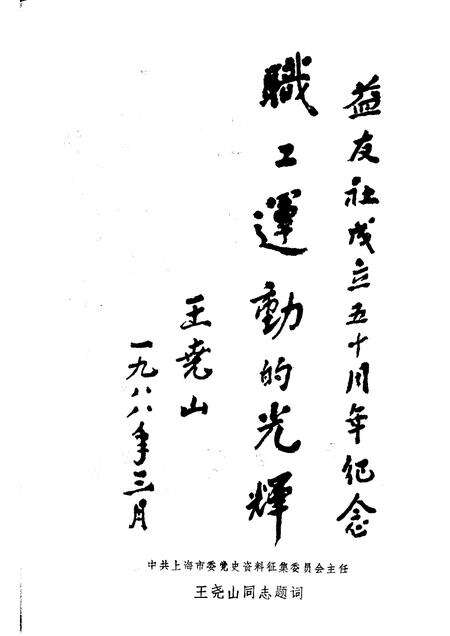 益友社成立五十周年纪念
職工運動的光輝
王尧山
一九八八年三月
中共上海市委党史资料征集委员会主任
王尧山同志题词